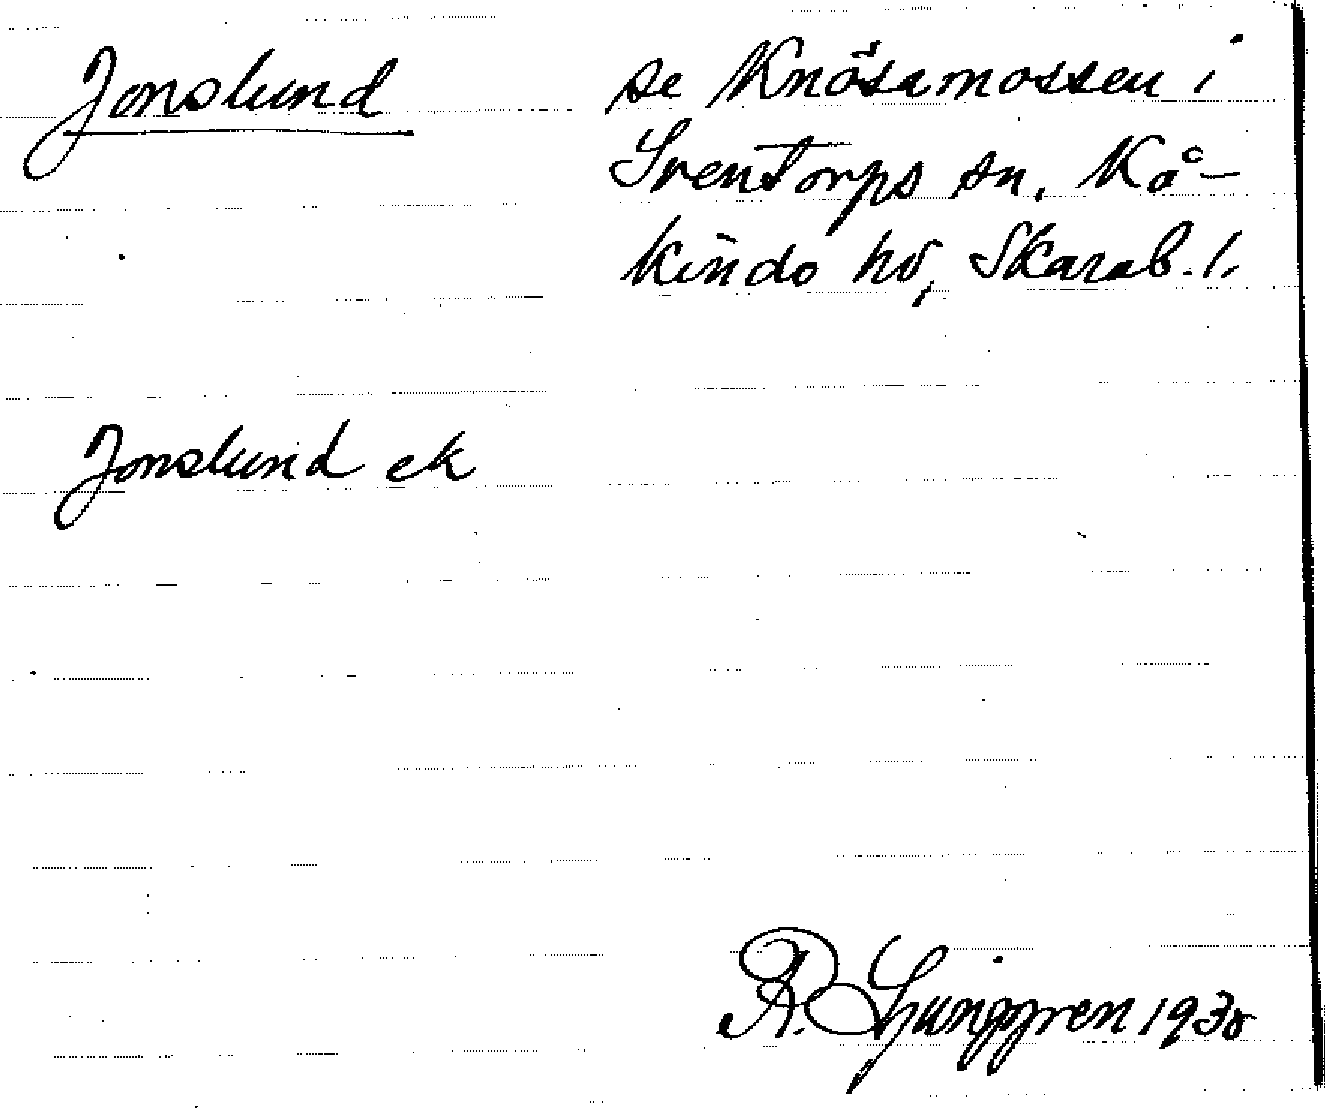 Jonslund se Knösamossen i
Sventorps sn. Kå-
kinds hd, Skarab. l.
Jonslund ek
R. Ljunggren 1930